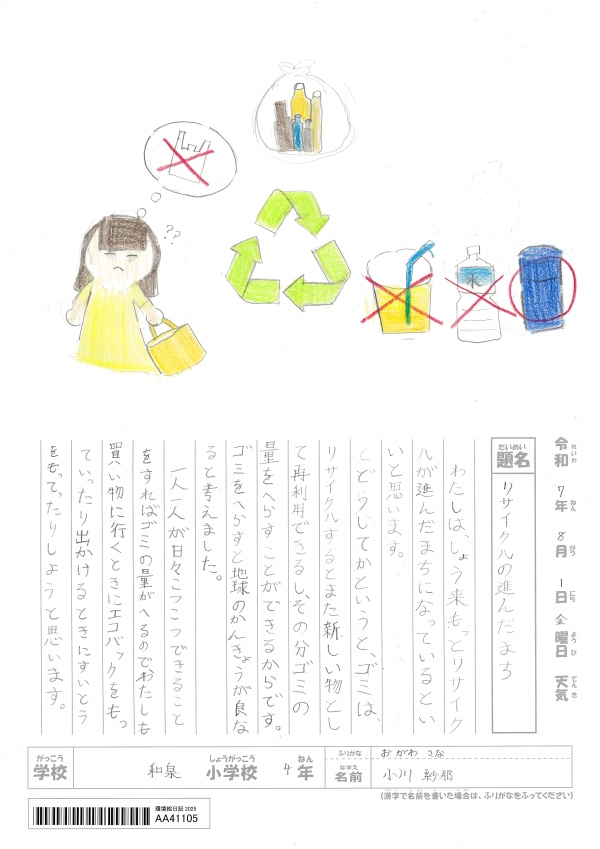 水
令和 7年 8月 1日 金曜日 天気
れいわ ねん がつ にち ようび てんき
だいめい
題名
リサイクルの進んだまち
わたしは、しょう来もっとリサイク
ルが進んだまちになっているとい
いと思います。
どうしてかというと、ゴミは、
リサイクルするとまた新しい物とし
て再利用できるし、その分ゴミの
量をへらすことができるからです。
ゴミをへらすと地球のかんきょうが良くな
ると考えました。
一人一人が日々こつこつできること
をすればゴミの量がへるのでわたしも
買い物に行くときにエコバックをもっ
ていったり出かけるときにすいとう
をもってったりしようと思います。
がっこう しょうがっこう ねん
学校 和泉 小学校 4年
ふりがな おがわ さな
なまえ
名前 小川 紗那
(漢字で名前を書いた場合は、ふりがなをふってください)
環境絵日記 2025
AA41105
??